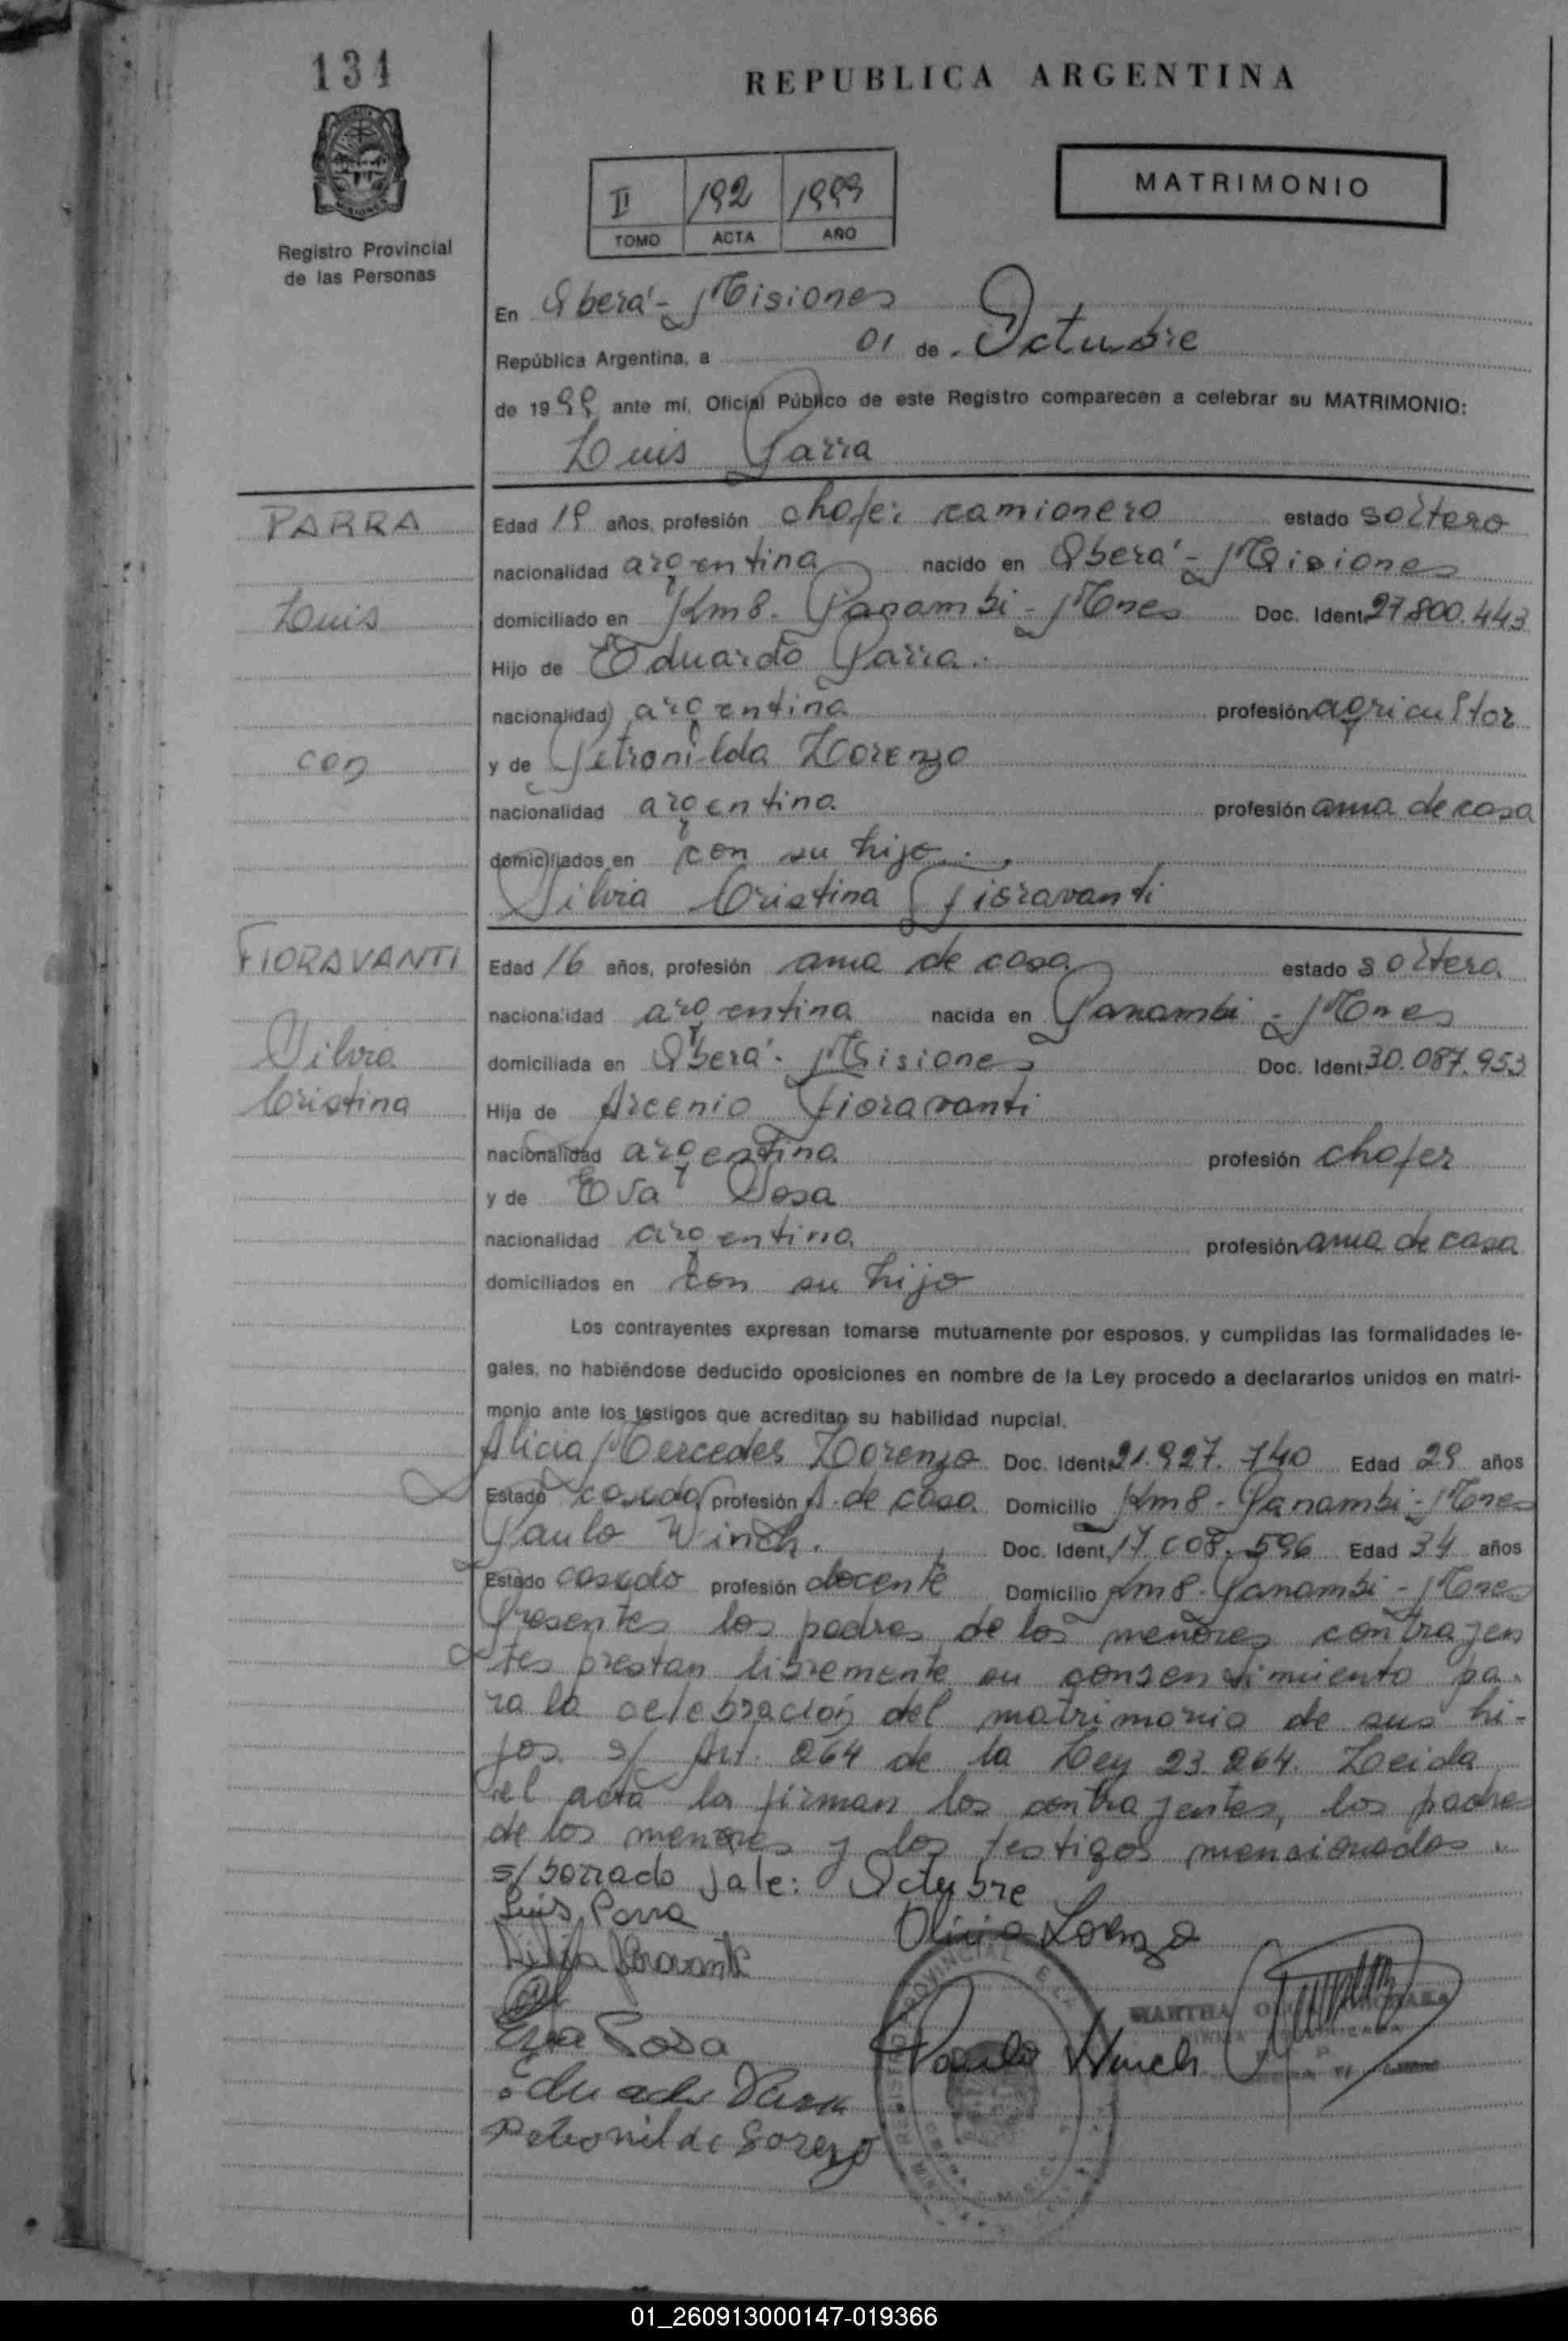 134
REPUBLICA ARGENTINA
MATRIMONIO
II 192 1999
TOMO ACTA AÑO
Registro Provincial
de las Personas
En Oberá - Misiones
República Argentina, a 01 de Octubre
de 1999 ante mí, Oficial Público de este Registro comparecen a celebrar su MATRIMONIO:
Luis Parra
PARRA
Edad 19 años, profesión chofer camionero estado soltero
nacionalidad argentina nacido en Oberá - Misiones
Luis
domiciliado en Km 8 - Panambi - Mnes Doc. Ident. 27.800.443
Hijo de Eduardo Parra.
nacionalidad argentina profesión agricultor
con
y de Petronilda Lorenzo
nacionalidad argentina profesión ama de casa
domiciliados en con su hijo.
Silvia Cristina Fioravanti
FIORAVANTI
Edad 16 años, profesión ama de casa estado soltera
nacionalidad argentina nacida en Panambi - Mnes
Silvia
domiciliada en Oberá - Misiones Doc. Ident. 30.087.953
Cristina
Hija de Arcenio Fioravanti
nacionalidad argentina profesión chofer
y de Eva Sosa
nacionalidad argentina profesión ama de casa
domiciliados en con su hijo
Los contrayentes expresan tomarse mutuamente por esposos, y cumplidas las formalidades le-
gales, no habiéndose deducido oposiciones en nombre de la Ley procedo a declararlos unidos en matri-
monio ante los testigos que acreditan su habilidad nupcial.
Alicia Mercedes Lorenzo Doc. Ident. 21.927.140 Edad 29 años
Estado casada profesión A. de casa Domicilio Km 8 - Panambi - Mnes
Paulo Winch. Doc. Ident. 17.008.596 Edad 34 años
Estado casado profesión docente Domicilio Km 8 - Panambi - Mnes
Presentes los padres de los menores contrayen
tes prestan libremente su consentimiento pa-
ra la celebración del matrimonio de sus hi-
jos s/ Art. 264 de la Ley 23.264. Leida
el acta la firman los contrayentes, los padres
de los menores y los testigos mencionados.
s/borrado vale: Octubre
Luis Parra
Alicia Lorenzo
Silvia Fioravanti
Eva Sosa
Paulo Winch
MARTHA
Eduardo Parra
Petronilda Lorenzo
01_260913000147-019366